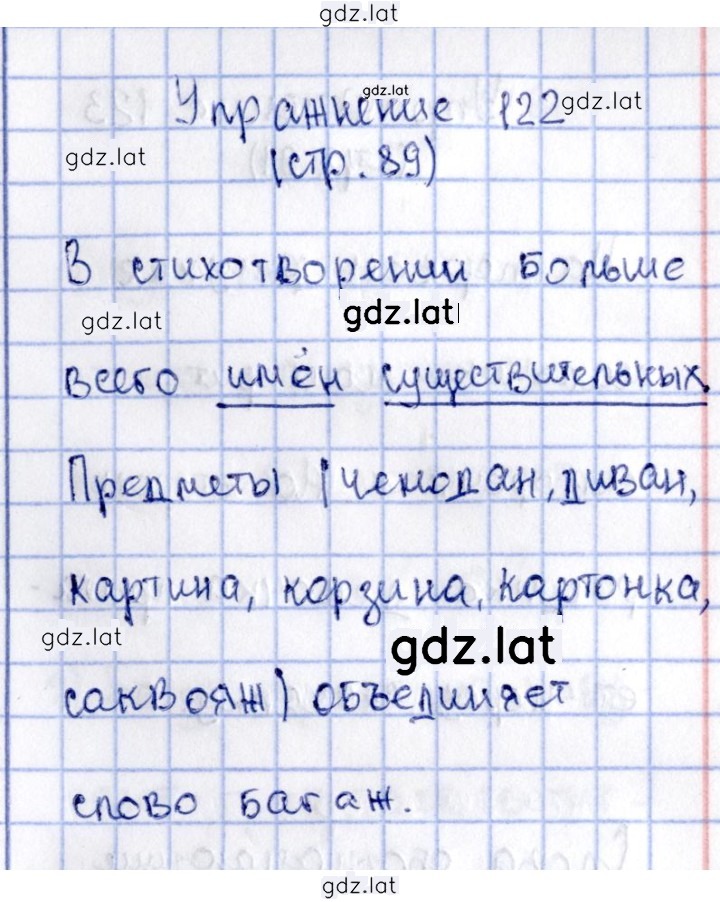 gdz.lat
Упражнение 122
gdz.lat
gdz.lat
gdz.lat
(стр. 89)
В стихотворении больше
gdz.lat
gdz.lat
всего имён существительных.
Предметы (чемодан, диван,
картина, корзина, картонка,
gdz.lat
gdz.lat
саквояж) объединяет
слово багаж.
gdz.lat